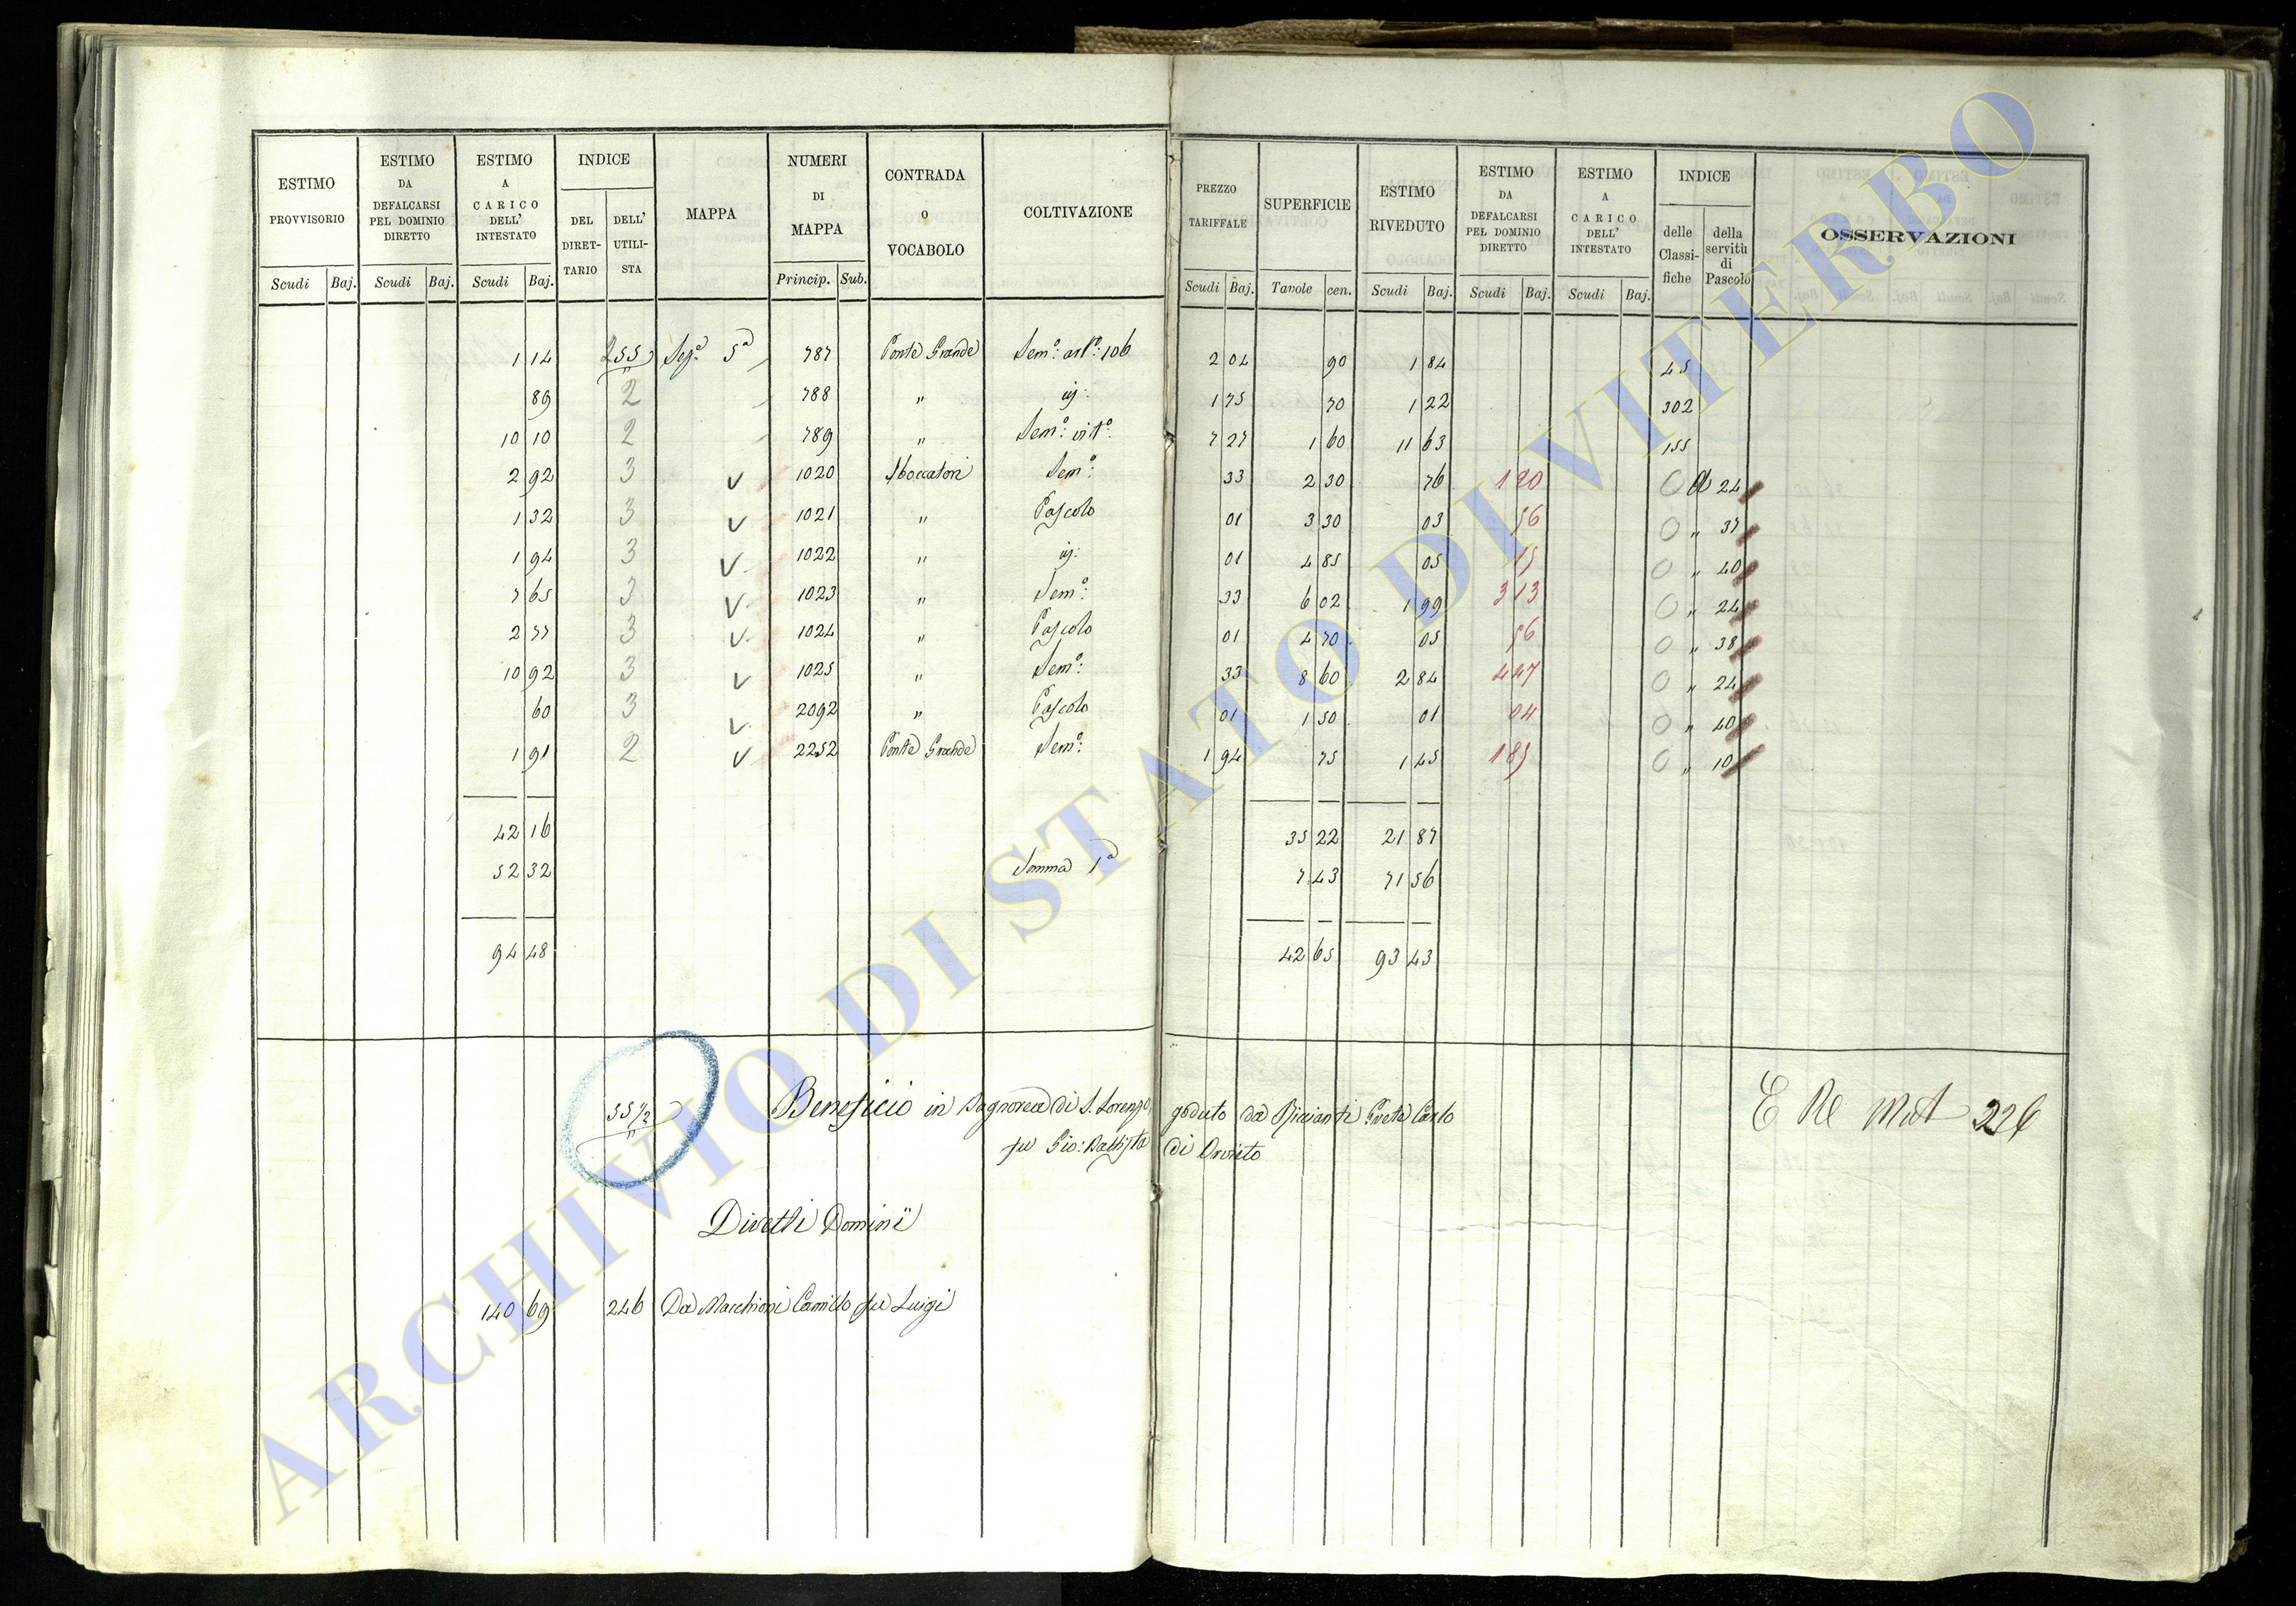 ESTIMO PROVVISORIO Scudi Baj. ESTIMO DA DEFALCARSI PEL DOMINIO DIRETTO Scudi Baj. ESTIMO A CARICO DELL' INTESTATO Scudi Baj. INDICE DEL DIRETTARIO DELL' UTILISTA MAPPA NUMERI DI MAPPA Princip. Sub. CONTRADA O VOCABOLO COLTIVAZIONE PREZZO TARIFFALE Scudi Baj. SUPERFICIE Tavole cen. ESTIMO RIVEDUTO Scudi Baj. ESTIMO DA DEFALCARSI PEL DOMINIO DIRETTO Scudi Baj. ESTIMO A CARICO DELL' INTESTATO Scudi Baj. INDICE delle Classifiche della servitù di Pascolo OSSERVAZIONI
1 14 255 Sez.e 5a 787 Ponte Grande Sem.o art.o: 106 2 04 90 1 84 45
89 2 788 " id: 1 75 70 1 22 302
10 10 2 789 " Sem.o vit.o 7 27 1 60 11 63 155
2 92 3 V 1020 Sboccatori Sem.o: 33 2 30 76 1 20 0 a 24
1 32 3 V 1021 " Pascolo 01 3 30 03 56 0 " 37
1 94 3 V 1022 " id: 01 4 85 05 15 0 " 40
7 65 3 V 1023 " Sem.o: 33 6 02 1 99 3 13 0 " 24
2 77 3 V 1024 " Pascolo 01 4 70 05 56 0 " 38
10 92 3 V 1025 " Sem.o: 33 8 60 2 84 4 47 0 " 24
60 3 V 2092 " Pascolo 01 1 50 01 04 0 " 40
1 91 2 V 2252 Ponte Grande Sem.o: 1 94 75 1 45 1 85 0 " 10
42 16 35 22 21 87
52 32 Somma 1a 7 43 71 56
94 48 42 65 93 43
55 1/2 Beneficio in Bagnorea di S. Lorenzo goduto da Prete Carlo E Re Mat 226
fu Gio: Battista di Orvieto
Diretti Dominii
140 69 246 Da Macchioni Camillo fu Luigi
ARCHIVIO DI STATO DI VITERBO